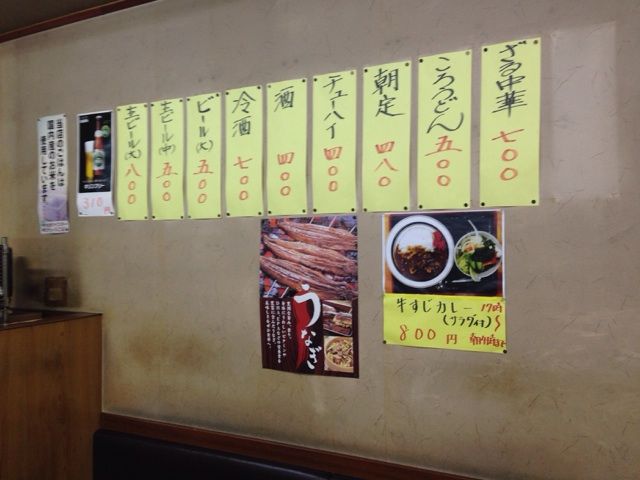 ざる中華 七〇〇
ころうどん 五〇〇
朝定 四八〇
チューハイ 四〇〇
酒 四〇〇
冷酒 七〇〇
ビール(大) 五〇〇
生ビール(中) 五〇〇
生ビール(大) 八〇〇
キリンフリー
310円
当店のごはんは
国内産のお米を
使用しています。
うなぎ
牛すじカレー
(サラダ付)
800円
17時